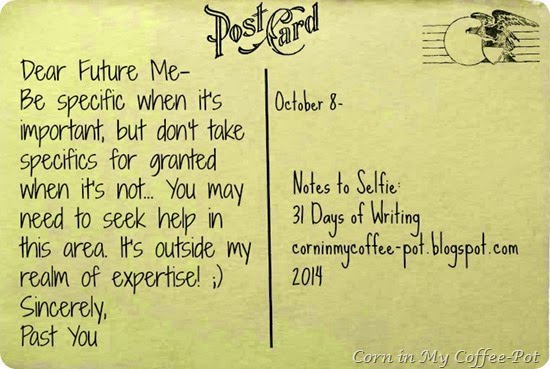 Post Card
Dear Future Me-
Be specific when it's
important, but don't take
specifics for granted
when it's not... You may
need to seek help in
this area. It's outside my
realm of expertise! ;)
Sincerely,
Past You
October 8-
Notes to Selfie:
31 Days of Writing
corninmycoffee-pot.blogspot.com
2014
Corn in My Coffee-Pot